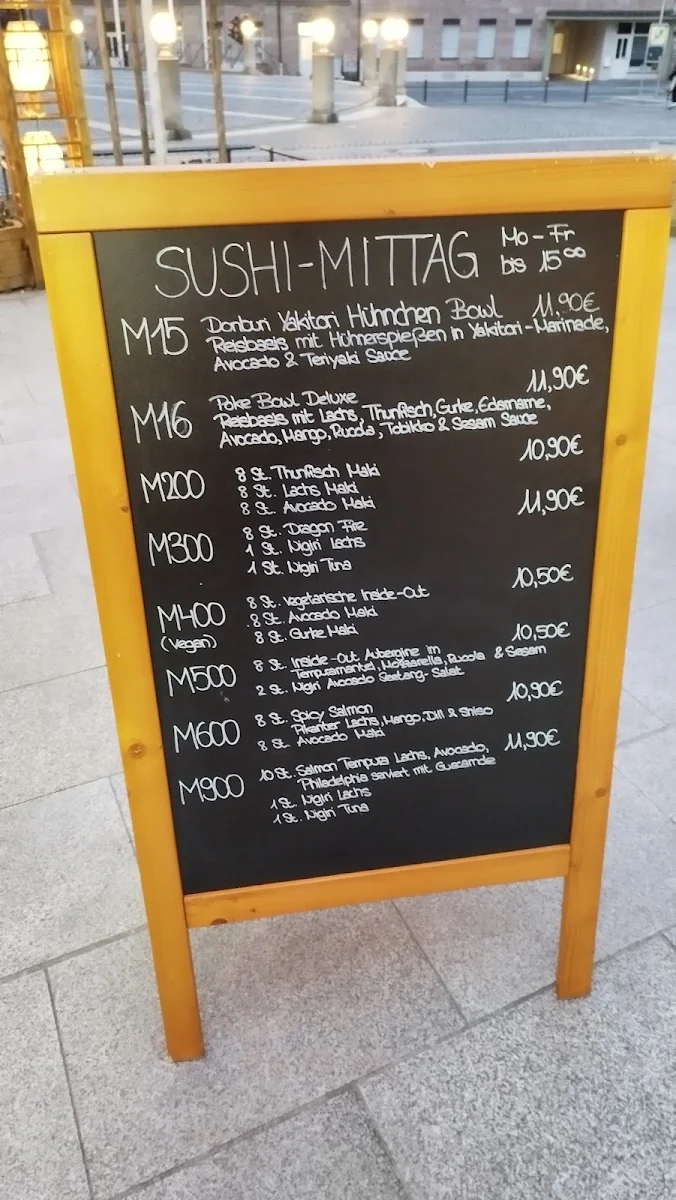 SUSHI-MITTAG Mo-Fr
bis 15⁰⁰
M15 Donburi Yakitori Hühnchen Bowl 11,90€
Reisbasis mit Hühnerspießen in Yakitori-Marinade,
Avocado & Teriyaki Sauce
11,90€
M16 Poke Bowl Deluxe
Reisbasis mit Lachs, Thunfisch, Gurke, Edamame,
Avocado, Mango, Rucola, Tobikko & Sesam Sauce
10,90€
M200 8 St. Thunfisch Maki
8 St. Lachs Maki
8 St. Avocado Maki
11,90€
M300 8 St. Dragon Fire
1 St. Nigiri Lachs
1 St. Nigiri Tuna
10,50€
M400 8 St. vegetarische Inside-Out
(vegan) 8 St. Avocado Maki
8 St. Gurke Maki
10,50€
M500 8 St. Inside-Out Aubergine im
Tempuramantel, Mozzarella, Rucola & Sesam
2 St. Nigiri Avocado Seetang-Salat
10,90€
M600 8 St. Spicy Salmon
Pikanter Lachs, Mango, Dill & Shiso
8 St. Avocado Maki
11,90€
M900 10 St. Salmon Tempura Lachs, Avocado,
Philadelphia serviert mit Guacamole
1 St. Nigiri Lachs
1 St. Nigiri Tuna